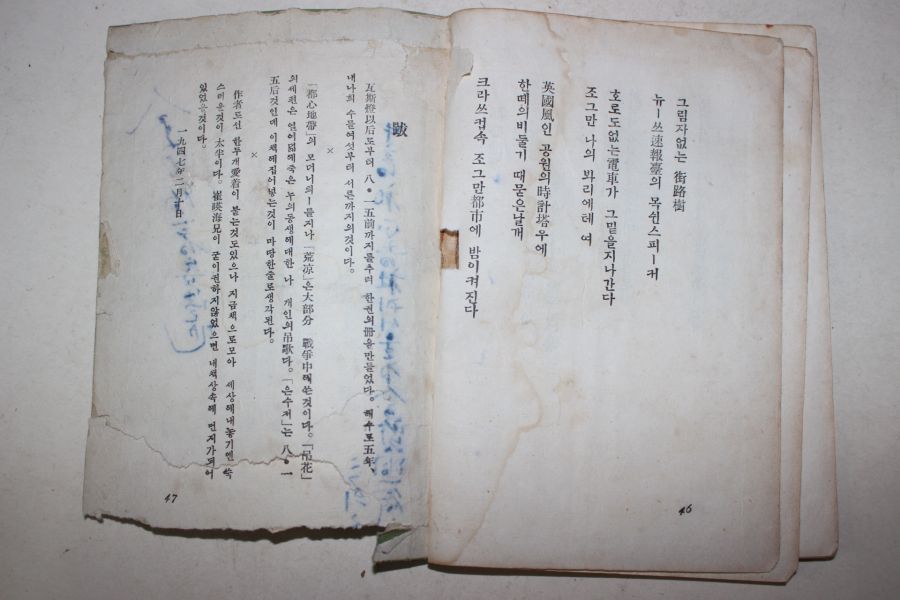 그림자없는 街路樹
뉴ー쓰速報臺의 목쉰스피ー커
호로도없는電車가 그밑을지나간다
조그만 나의 봐리에테 여
英國風인 공원의時計塔우에
한떼의비둘기 때묻은날개
크라쓰컵속 조그만都市에 밤이켜진다
46
跋
瓦斯燈以后도부터 八•一五前까지를추려 한권의冊을만들었다。해수로五年、
내나희 수물여섯부터 서른까지의것이다。
×
「都心地帶」의 모더니의ー를지나「荒凉」은大部分 戰爭中에쓴것이다。「吊花」
의세편은 열여듧에죽은 누의동생에대한 나 개인의吊歌다。「은수저」는 八•一
五后것인데 이책에집어넣는것이 마땅한줄로생각된다。
×
作者로선 한두개愛着이 붙는것도있으나 지금책으로모아 세상에내놓기엔 쑥
스러운것이 太半이다。崔暎海兄이 굳이권하지않었으면 내책상속에 먼지가되어
있었을것이다。
一九四七年二月十日
47